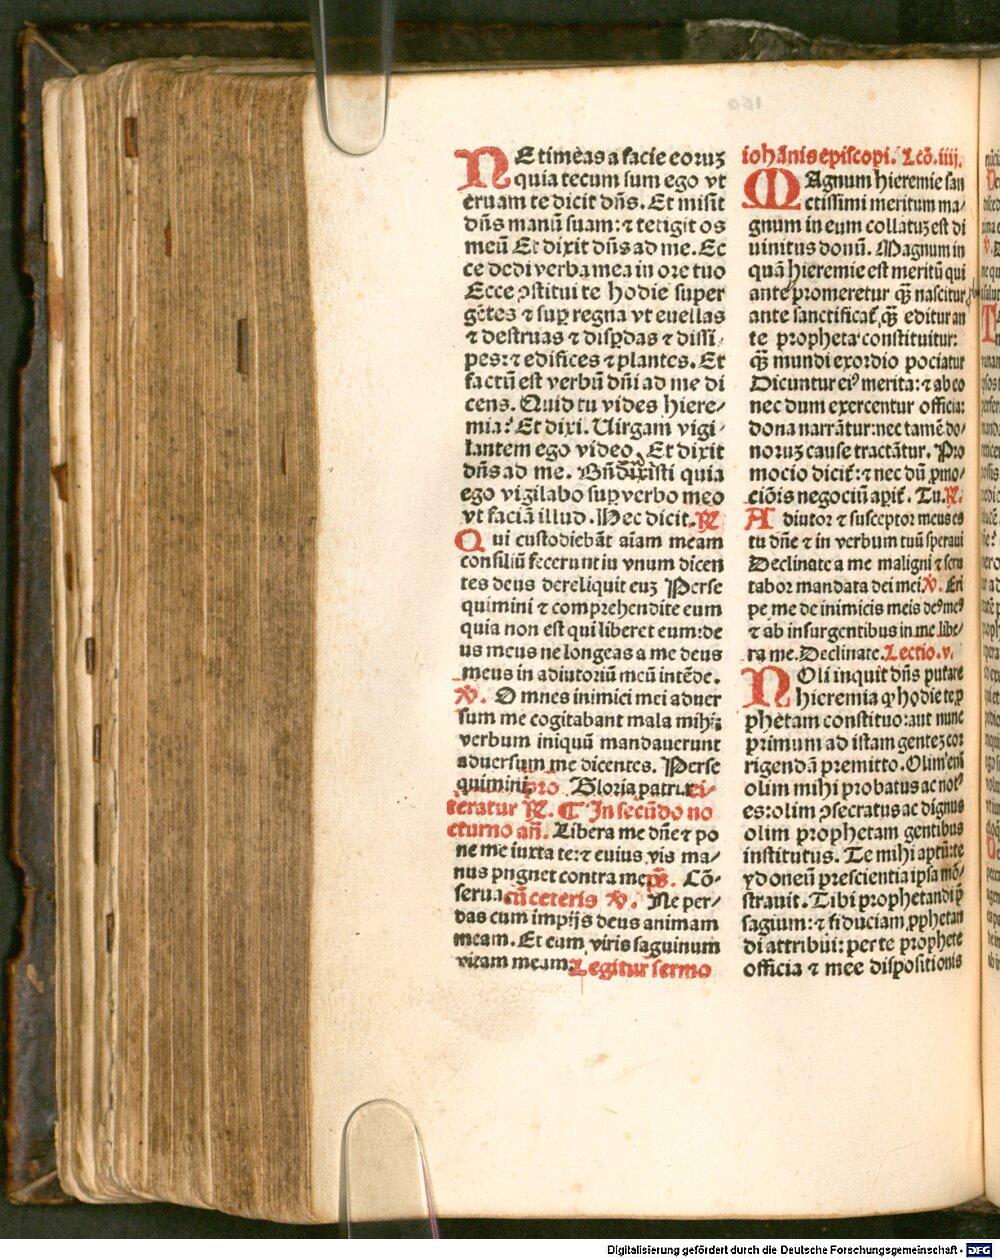 NE timeas a facie eoruꝫ
quia tecum sum ego vt
eruam te dicit dn̄s. Et misit
dn̄s manū suam: ⁊ tetigit os
meū Et dixit dn̄s ad me. Ec
ce dedi verba mea in ore tuo
Ecce ꝯstitui te hodie super
gētes ⁊ suꝑ regna vt euellas
⁊ destruas ⁊ disꝑdas ⁊ dissi-
pes: ⁊ edifices ⁊ plantes. Et
factū est verbū dn̄i ad me di
cens. Quid tu vides hiere-
mia? Et dixi. Uirgam vigi-
lantem ego video. Et dixit
dn̄s ad me. Bn̄ dixisti quia
ego vigilabo suꝑ verbo meo
vt faciā illud. Hec dicit. ℟
Qui custodiebāt aīam meam
consiliū fecerunt in vnum dicen
tes deus dereliquit euꝫ Perse
quimini ⁊ comprehendite eum
quia non est qui liberet eum: de
us meus ne longeas a me deus
meus in adiutoriū meū intēde.
℣. Omnes inimici mei aduer
sum me cogitabant mala mihi:
verbum iniquū mandauerunt
aduersum me dicentes. Perse
quimini. pro Gloria patri. rei-
teratur ℟. ¶ In secūdo no
cturno an̄. Libera me dn̄e ⁊ po
ne me iuxta te: ⁊ cuius vis ma-
nus pugnet contra me. ps̄. Cō-
serua. cū ceteris ℣. Ne per-
das cum impijs deus animam
meam. Et cum viris saguinum
vitam meam. Legitur sermo
iohānis episcopi. Lcō. iiij.
MAgnum hieremie san
ctissimi meritum ma-
gnum in eum collatuꝫ est di
uinitus donū. Magnum in
quā hieremie est meritū qui
ante promeretur qꝫ nascitur
ante sanctificat̄ qꝫ editur an
te propheta constituitur:
qꝫ mundi exordio pociatur
Dicuntur eiꝰ merita: ⁊ ab eo
nec dum exercentur officia:
dona narrātur: nec tamē do-
noruꝫ cause tractātur. Pro
mocio dicit̄: ⁊ nec dū ꝓmo-
ciōis negociū apit̄. Tu. ℟.
Adiutor ⁊ susceptor meus es
tu dn̄e ⁊ in verbum tuū speraui
Declinate a me maligni ⁊ scru
tabor mandata dei mei ℣. Eri
pe me de inimicis meis deꝰ meꝰ
⁊ ab insurgentibus in me libe-
ra me. Declinate. Lectio. v.
NOli inquit dn̄s putare
hieremia ꝙ hodie te ꝓ
phētam constituo: aut nunc
primum ad istam genteꝫ cor
rigendā premitto. Olim em̄
olim mihi probatus ac notꝰ
es: olim ꝯsecratus ac dignus
olim prophetam gentibus
institutus. Te mihi aptū: te
ydoneū prescientia ipsa mō-
strauit. Tibi prophetandi p̄
sagium: ⁊ fiduciam ꝓphetan
di attribui: per te prophete
officia ⁊ mee dispositionis
Digitalisierung gefördert durch die Deutsche Forschungsgemeinschaft - DFG